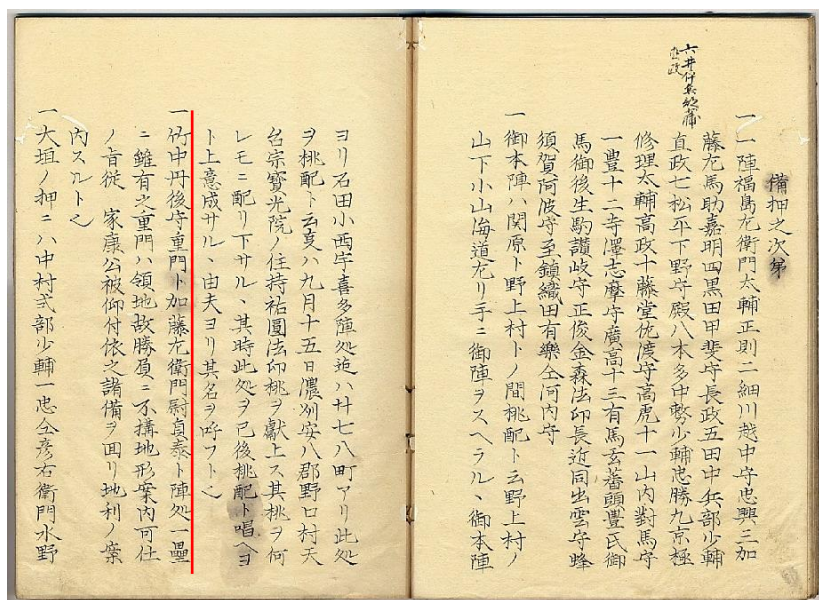 備押之次第
六井伊兵部少輔
直政
一一陣福島左衛門太輔正則二細川越中守忠興三加
藤左馬助嘉明四黒田甲斐守長政五田中兵部少輔
直政七松平下野守殿八本多中務少輔忠勝九京極
修理太輔高政十藤堂佐渡守高虎十一山内對馬守
一豊十二寺澤志摩守廣高十三有馬玄蕃頭豊氏御
馬御後生駒讃岐守正俊金森法印長近同出雲守蜂
須賀阿波守至鎮織田有樂仝河内守
一御本陣ハ関原ト野上村トノ間桃配ト云野上村ノ
山下小山海道左リ手ニ御陣ヲスヘラルヽ御本陣
ヨリ石田小西宇喜多陣処迄ハ廿七八町アリ此処
ヲ桃配ト云叓ハ九月十五日濃刕安八郡野口村天
台宗寳光院ノ住持祐圓法印桃ヲ献上ス其桃ヲ何
レモニ配リ下サルヽ其時此処ヲ已後桃配ト唱ヘヨ
ト上意成サルヽ由夫ヨリ其名ヲ呼フト〻
一竹中丹後守重門ト加藤左衛門尉貞泰ト陣処一壘
ニ雖有之重門ハ領地故勝負ニ不構地形案内可仕
ノ旨従 家康公被仰付依之諸備ヲ囬リ地利ノ案
内スルト〻
一大垣ノ押ニハ中村式部少輔一忠仝彦右衛門水野